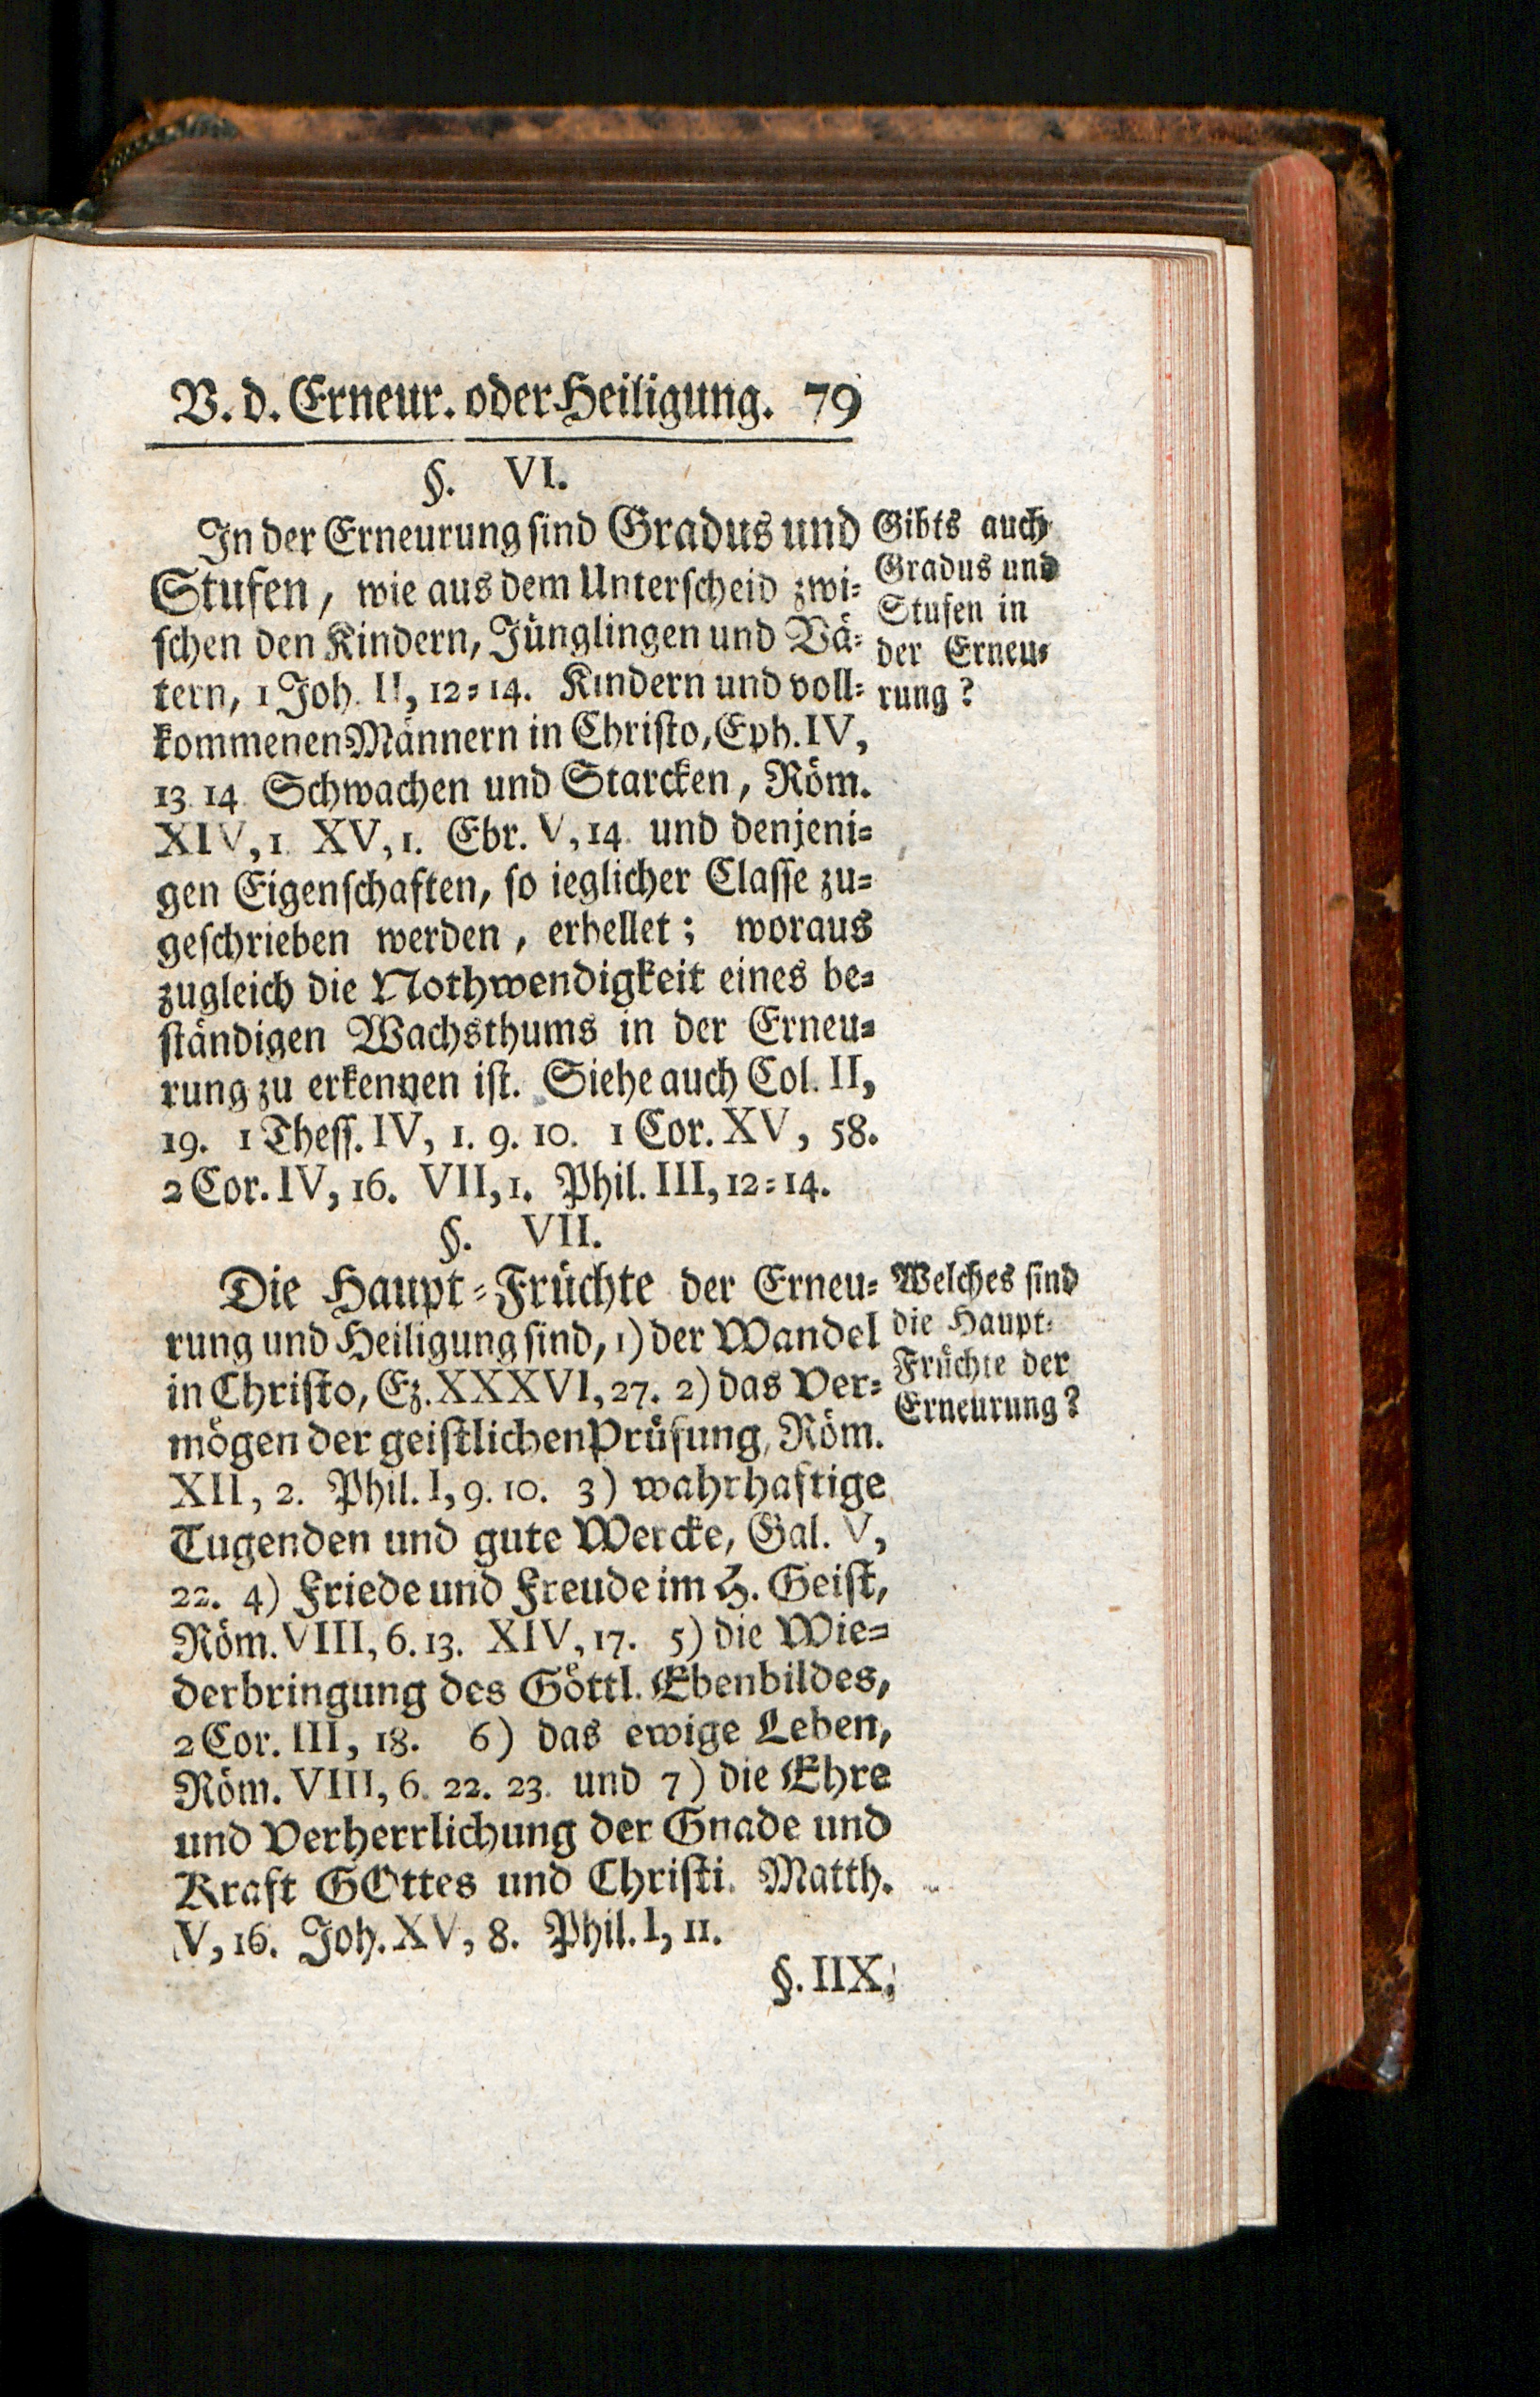 V. d. Erneur. oder Heiligung. 79
§. VI.
In der Erneurung sind Gradus und
Stufen, wie aus dem Unterscheid zwi-
schen den Kindern, Jünglingen und Vä-
tern, 1 Joh. II, 12-14. Kindern und voll-
kommenen Männern in Christo, Eph. IV,
13. 14. Schwachen und Starcken, Röm.
XIV, 1. XV, 1. Ebr. V, 14. und denjeni-
gen Eigenschaften, so ieglicher Classe zu-
geschrieben werden, erhellet; woraus
zugleich die Nothwendigkeit eines be-
ständigen Wachsthums in der Erneu-
rung zu erkennen ist. Siehe auch Col. II,
19. 1 Thess. IV, 1. 9. 10. 1 Cor. XV, 58.
2 Cor. IV, 16. VII, 1. Phil. III, 12-14.
Gibts auch
Gradus und
Stufen in
der Erneu-
rung?
§. VII.
Die Haupt-Früchte der Erneu-
rung und Heiligung sind, 1) der Wandel
in Christo, Ez. XXXVI, 27. 2) das Ver-
mögen der geistlichen Prüfung, Röm.
XII, 2. Phil. I, 9. 10. 3) wahrhaftige
Tugenden und gute Wercke, Gal. V,
22. 4) Friede und Freude im H. Geist,
Röm. VIII, 6. 13. XIV, 17. 5) die Wie-
derbringung des Göttl. Ebenbildes,
2 Cor. III, 18. 6) das ewige Leben,
Röm. VIII, 6. 22. 23. und 7) die Ehre
und Verherrlichung der Gnade und
Kraft GOttes und Christi. Matth.
V, 16. Joh. XV, 8. Phil. I, 11.
Welches sind
die Haupt-
Früchte der
Erneurung?
§. IIX,